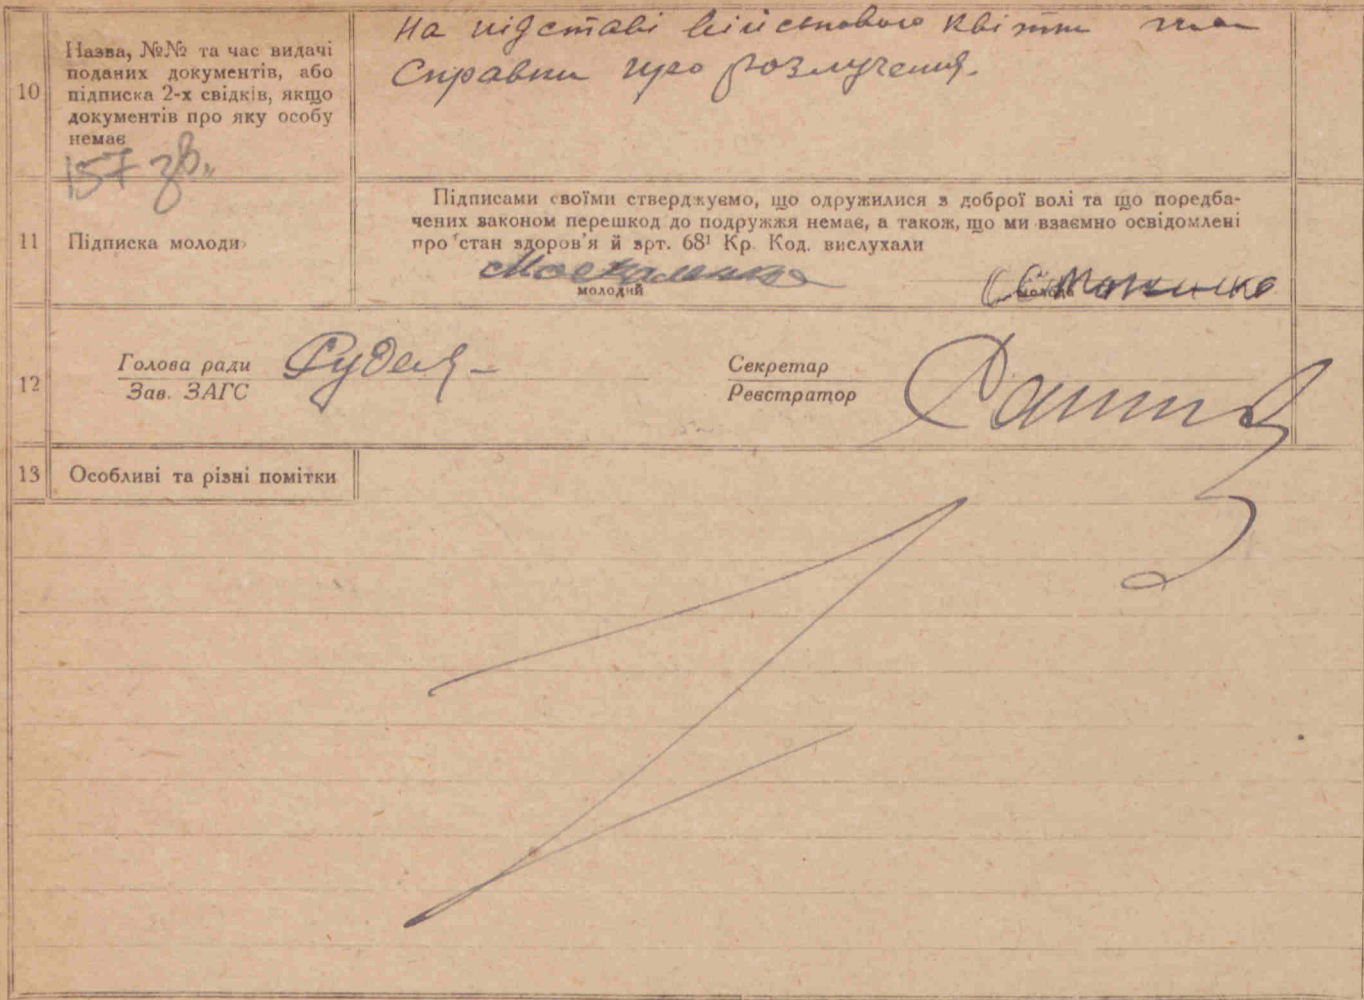 10
Назва, №№ та час видачі
поданих документів, або
підписка 2-х свідків, якщо
документів про яку особу
немає
157 зв.
На підставі військового квітка та
Справки про розлучення.
11
Підписка молоди
Підписами своїми стверджуємо, що одружилися з доброї волі та що поредба-
чених законом перешкод до подружжя немає, а також, що ми взаємно освідомлені
про стан здоров'я й арт. 68¹ Кр. Код. вислухали
Москаленко
молодий
молода
12
Голова ради
Зав. ЗАГС
Секретар
Реєстратор
13
Особливі та різні помітки